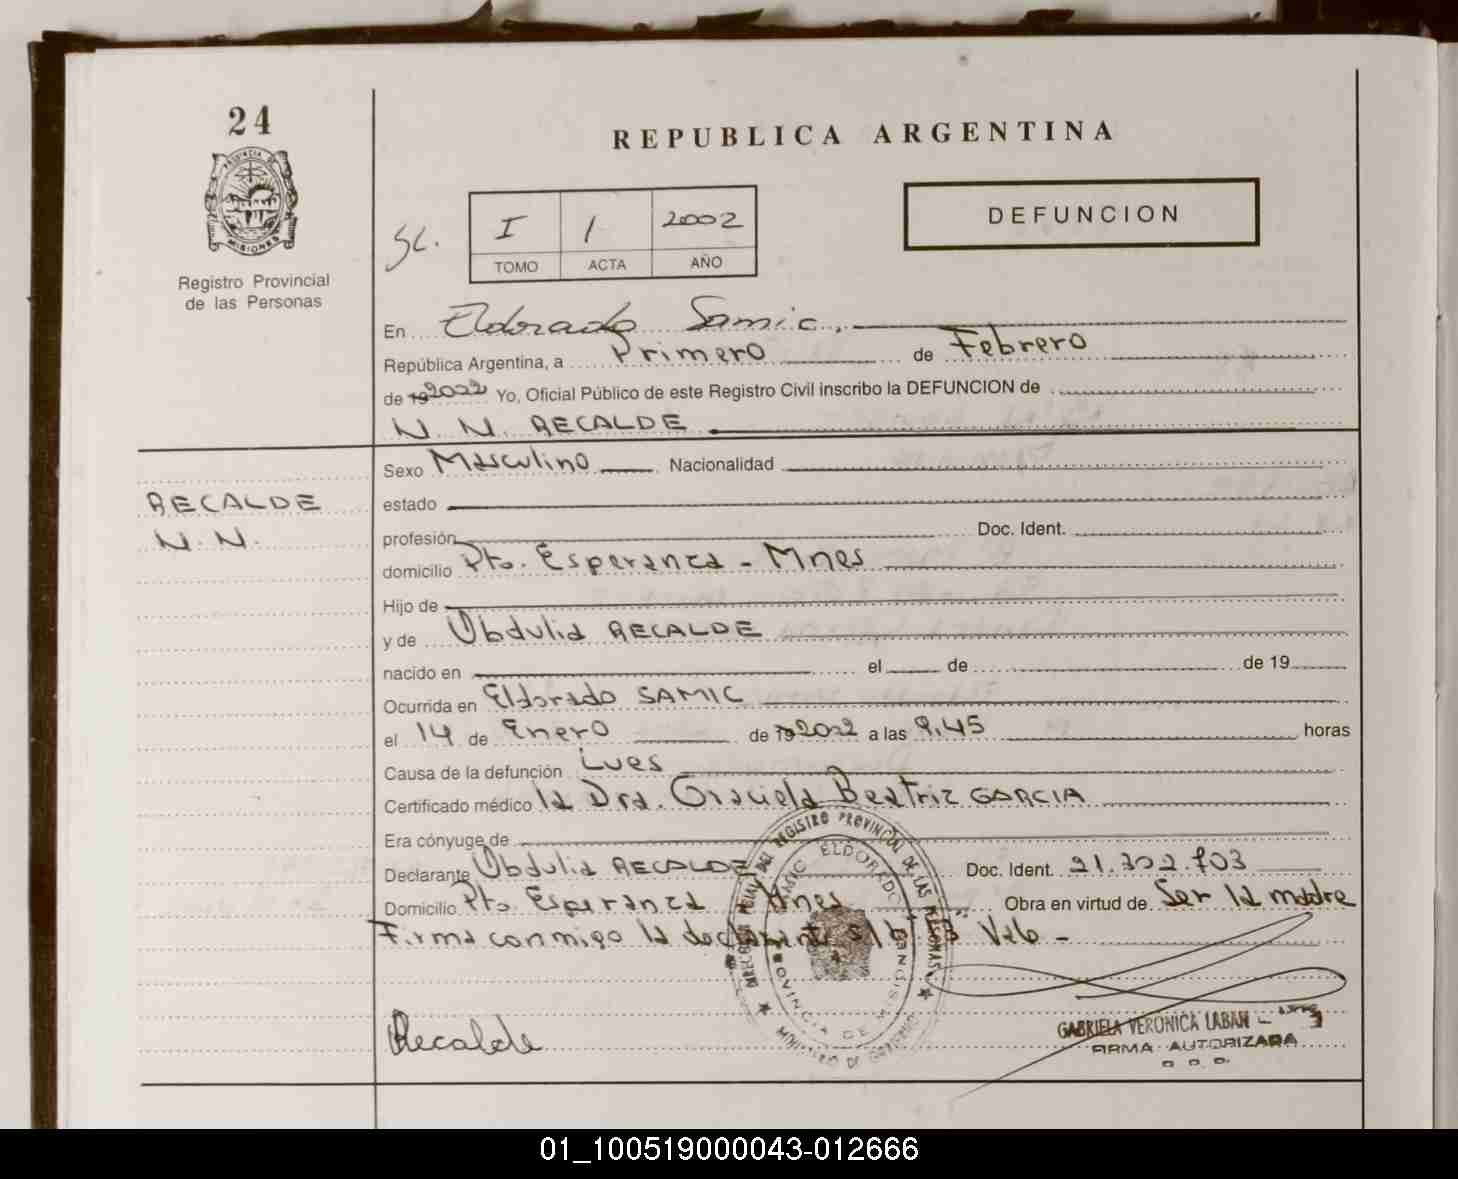 24
PROVINCIA DE
MISIONES
Registro Provincial
de las Personas
REPUBLICA ARGENTINA
I 1 2002
TOMO ACTA AÑO
DEFUNCION
En Eldorado Samic,
República Argentina, a Primero de Febrero
de 19 2002 Yo, Oficial Público de este Registro Civil inscribo la DEFUNCION de
N. N. RECALDE
RECALDE
N. N.
Sexo Masculino Nacionalidad
estado
profesión Doc. Ident.
domicilio Pto. Esperanza - Mnes
Hijo de
y de Obdulia RECALDE
nacido en el de de 19
Ocurrida en Eldorado SAMIC
el 14 de Enero de 19 2002 a las 9,45 horas
Causa de la defunción Lues
Certificado médico la Dra. Graciela Beatriz GARCIA
Era cónyuge de
Declarante Obdulia RECALDE Doc. Ident. 21.302.703
Domicilio Pto. Esperanza Mnes Obra en virtud de Ser la madre
Firma conmigo la declarante Vale -
Recalde
GABRIELA VERONICA LABAN
FIRMA AUTORIZADA
REGISTRO PROVINCIAL DE LAS PERSONAS
SAMIC ELDORADO
PROVINCIA DE MISIONES
MINISTERIO DE GOBIERNO
01_100519000043-012666